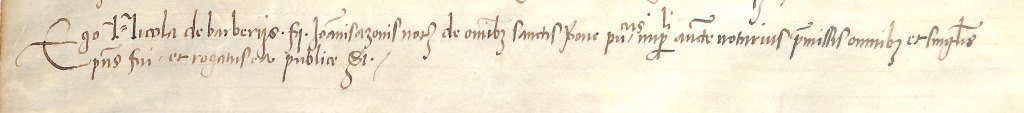 Ego Nicola de barberijs . fq. Joannis azonis notarij de omnibus sanctis Bone pu.cus imp.li aucte notarius premissis omnibus et singulis
pns fui . et rogatus ea publice SS.